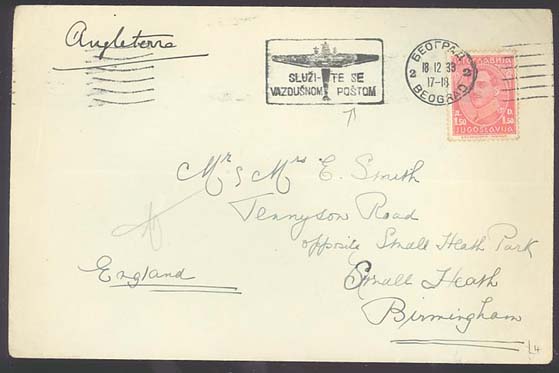 Angleterre
SLUŽI-TE SE
VAZDUŠNOM POŠTOM
БЕОГРАД
2 18 12 33 2
17-18
BEOGRAD
ЈУГОСЛАВИЈА
Д. 1.50 D. 1.50
JUGOSLAVIJA
Mr & Mrs E. Smith
Tennyson Road
opposite Small Heath Park
England
Small Heath
Birmingham
4